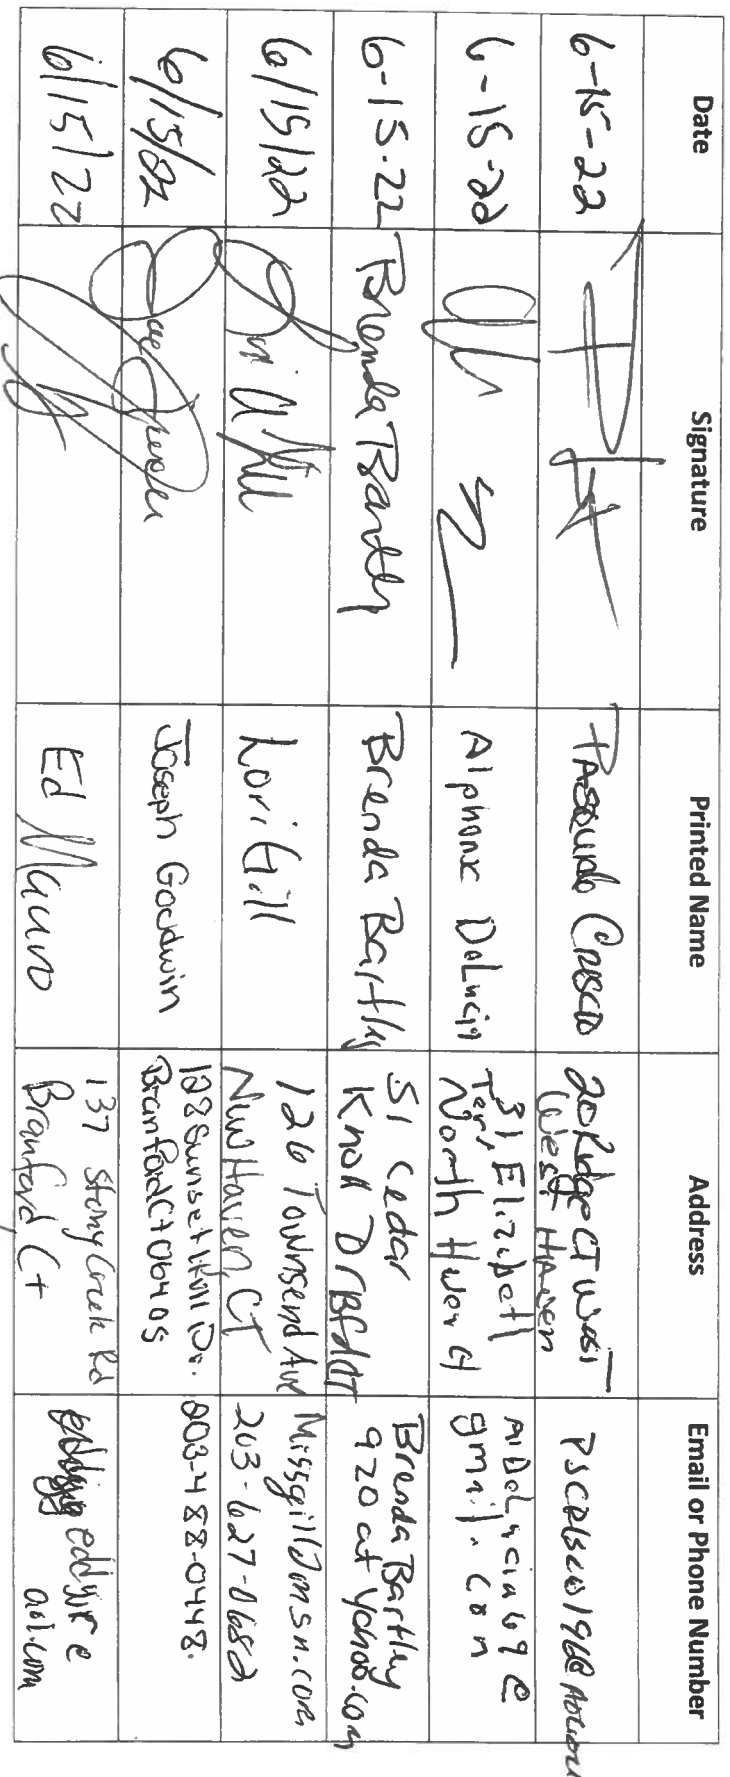 Date Signature Printed Name Address Email or Phone Number
6-15-22 Crescio 20 Ridge CT West
West Haven
6-15-22 Alphonse DeLucia 31 Elizabeth
Terr
North Haven Ct
AlDeLucia69@
gmail.con
6-15-22 Brenda Bartley Brenda Bartley 51 Cedar
Knoll Dr BFd CT
Brenda Bartley
920 at yahoo.com
6/15/22 Lori Gill 126 Townsend Ave
New Haven, CT
Missgill@msn.com
203-627-0682
6/15/22 Joseph Goodwin 128 Sunset Hill Dr.
Branford Ct 06405
203-488-0448.
6/15/22 Ed Mauro 137 Stony Creek Rd
Branford Ct
aol.com